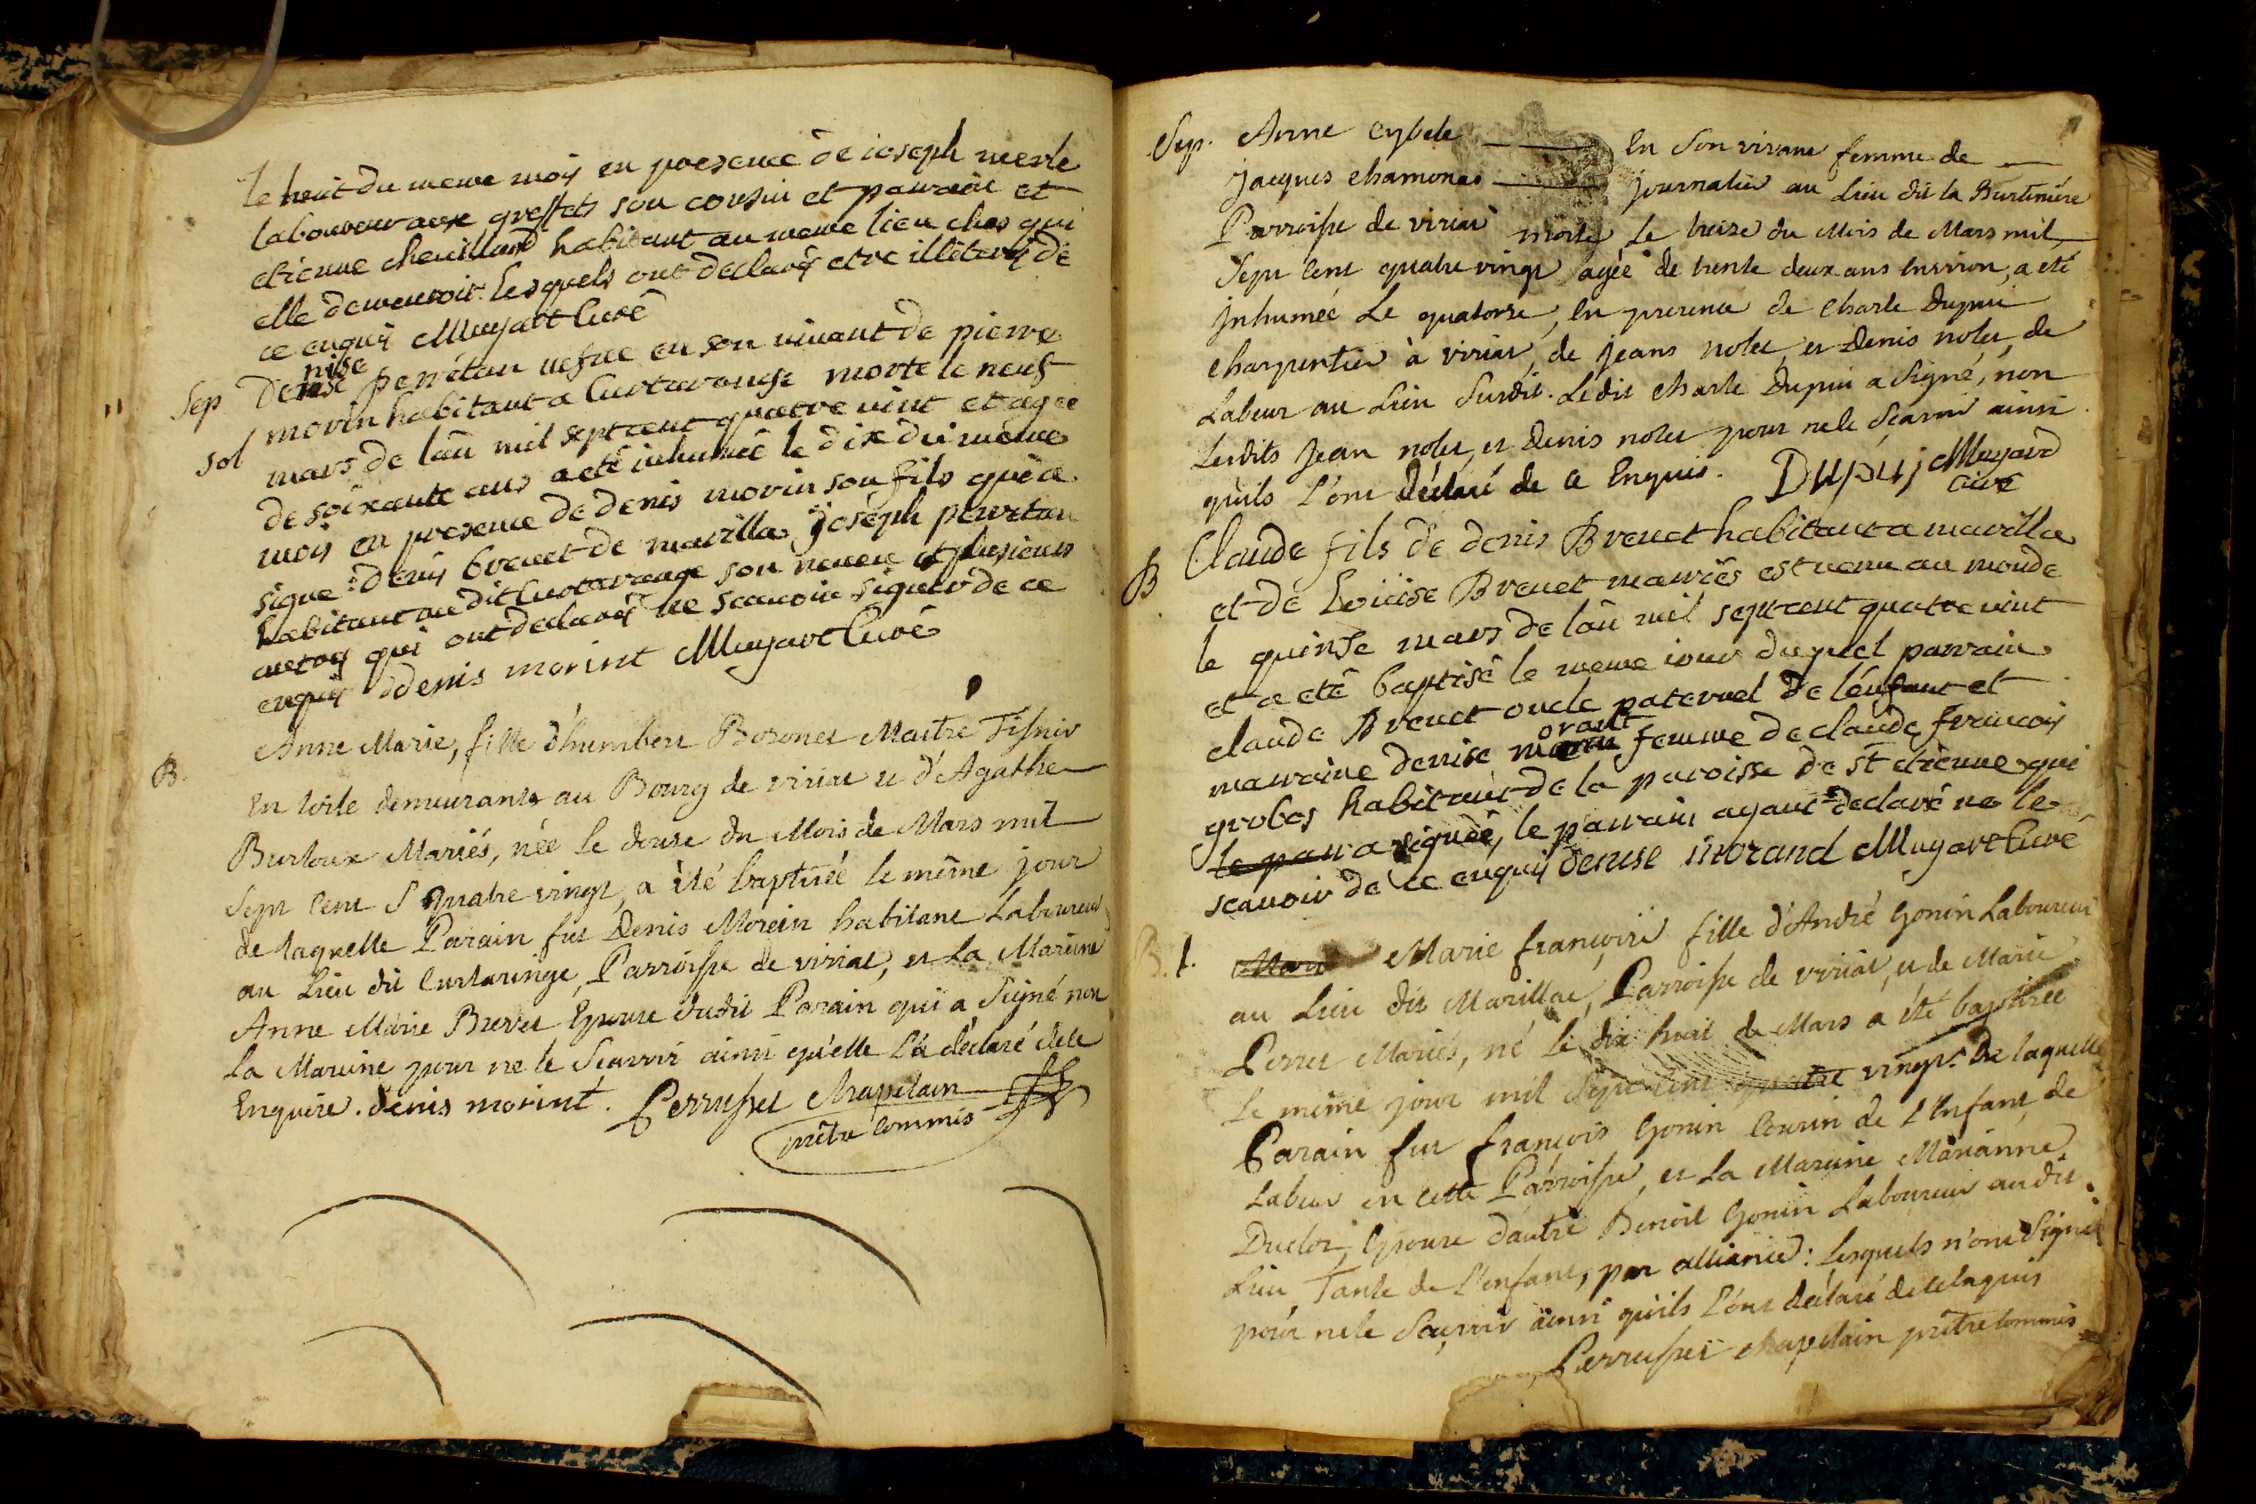 le huit du meme mois en presence de ioseph merle
laboureur aux greffets son cousin et parrain et
etienne chevilland habitant au meme lieu ches qui
elle demeuroit. lesquels ont declarés etre illiterés de
ce enquis Muyart Curé
Sep Denise perrétan vefue en son vivant de pierre
morin habitant a Curtaronge morte le neuf
sol mars de lan mil sept cent quatre vint et agee
de soixante ans a eté inhumeé le dix du même
mois en presence de denis morin son fils qui a
signe denis brevet de marilla joseph perretan
habitant au dit Curtaronge son neveu et plusieurs
autres qui ont declarés ne scavoir signer de ce
enquis denis morint Muyart Curé
B. Anne Marie, fille d'humbert Bozonet Maitre Tisnir
En toile demeurants au Bourg de viriat et d'Agathe
Burtoux Mariés, née le douse du Mois de Mars mil
Sept Cent S quatre vingt, a été baptisée le même jour
de laquelle Parain fut Denis Morein habitant Laboureur
au Lieu dit Curtaringe, Parroisse de viriat, et La Mareine
Anne Marie Brevet Epouse dudit Parain qui a Signé non
La Mareine pour ne le Scavoir ainsi qu'elle L'a déclaré dele
Enquise. denis morint. Perrusset Chapelain
prêtre Commis
Sep. Anne Cybele En Son vivant femme de
Jacques Chamonas journalier au Lieu dit la Burtinière
Parroisse de viriat morte Le treise du Mois de Mars mil
Sept Cent quatre vingt agée de trente deux ans Environ, a eté
Inhumée Le quatorse, En presence de Charle Dupui
Charpentier à viriat, de Jeans nolet et Denis nolet, de
Labeur au Lieu Susdit. Ledit Charle Dupui a Signé, non
Lesdits Jean nolet, et Denis nolet pour ne le Scavoir ainsi
quils L'ont déclaré de ce Enquis. Dupuj Muyard
Curé
B Claude fils de denis Brevet habitant a marilla
et de Loüise Brevet mariés est venu au monde
le quinse mars de lan mil sept cent quatre vint
et a eté baptisé le meme iour duquel parrain
claude Brevet oncle paternel de l'enfant et
orant
marraine denise morin femme de claude francois
grobos habitant de la paroisse de st etienne qui
le parr a signée, le parrain ayant declaré ne le
scavoir de ce enquis denise morand Muyart Curé
B. t. Mari Marie françoise fille d'André Gonin Laboureur
au Lieu dit Marillac, Parroisse de viriat, et de Marie
Perret Mariés, né le dix huit de Mars a été baptisée
Le même jour mil Sept Cent quatre vingt. De laquelle
Parain fut françois Gonin Cousin de L'Enfant, de
Labeur en cette Parroisse, et La Mareine Marianne
Duclos, Epouse d'autre Benoit Gonin Laboureur audit
Lieu Tante de L'enfant, par alliance: Lesquels n'ont Signé
pour ne le Scavoir ainsi quils L'ont déclaré de ce enquis
Perrusset chapelain prêtre commis